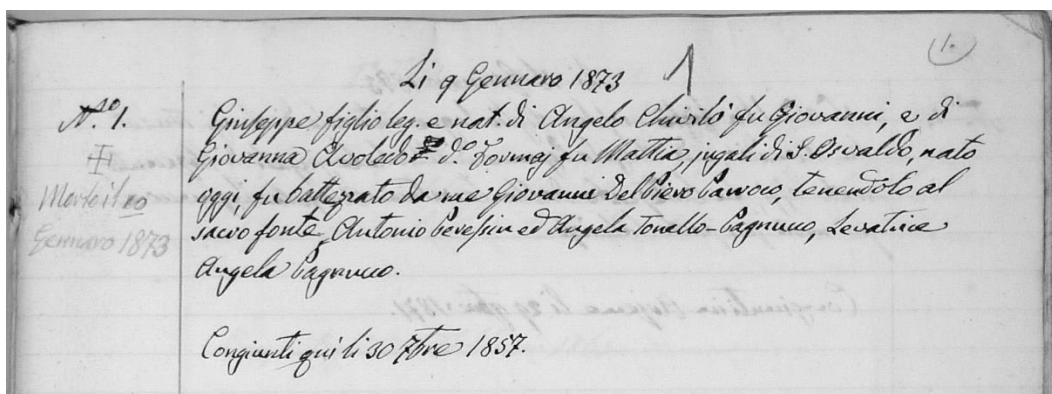 (1.
Li 9 Gennaro 1873 1
N.º 1. Giuseppe figlio leg. e nat. di Angelo Chivilò fu Giovanni, e di
Giovanna Avoledo d.º fu Mattia, jugali di S. Osvaldo, nato
Morto il 10 oggi, fu battezzato da me Giovanni Del Piero Parroco, tenendolo al
Gennaro 1873 sacro fonte, Antonio ed Angela Tonello-Pagnucco, Levatrice
Angela Pagnucco.
Congiunti qui li 30 7bre 1857.